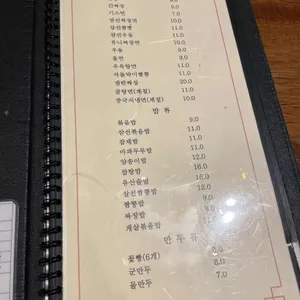 간짜장 9.0
기스면 9.0
삼선짜장면 10.0
삼선짬뽕 11.0
삼선우동 11.0
유니짜장면 10.0
우동 9.0
울면 9.0
우육탕면 11.0
차돌박이짬뽕 11.0
쟁반짜장 20.0
굴탕면(계절) 11.0
중국식냉면(계절) 10.0
밥 류
볶음밥 9.0
삼선볶음밥 11.0
잡채밥 11.0
마파두부밥 11.0
양송이밥 12.0
잡탕밥 16.0
유산슬밥 16.0
삼선짬뽕밥 12.0
짬뽕밥 9.0
짜장밥 9.0
게살볶음밥 11.0
만 두 류
꽃빵(6개)
군만두 8.0
물만두 7.0